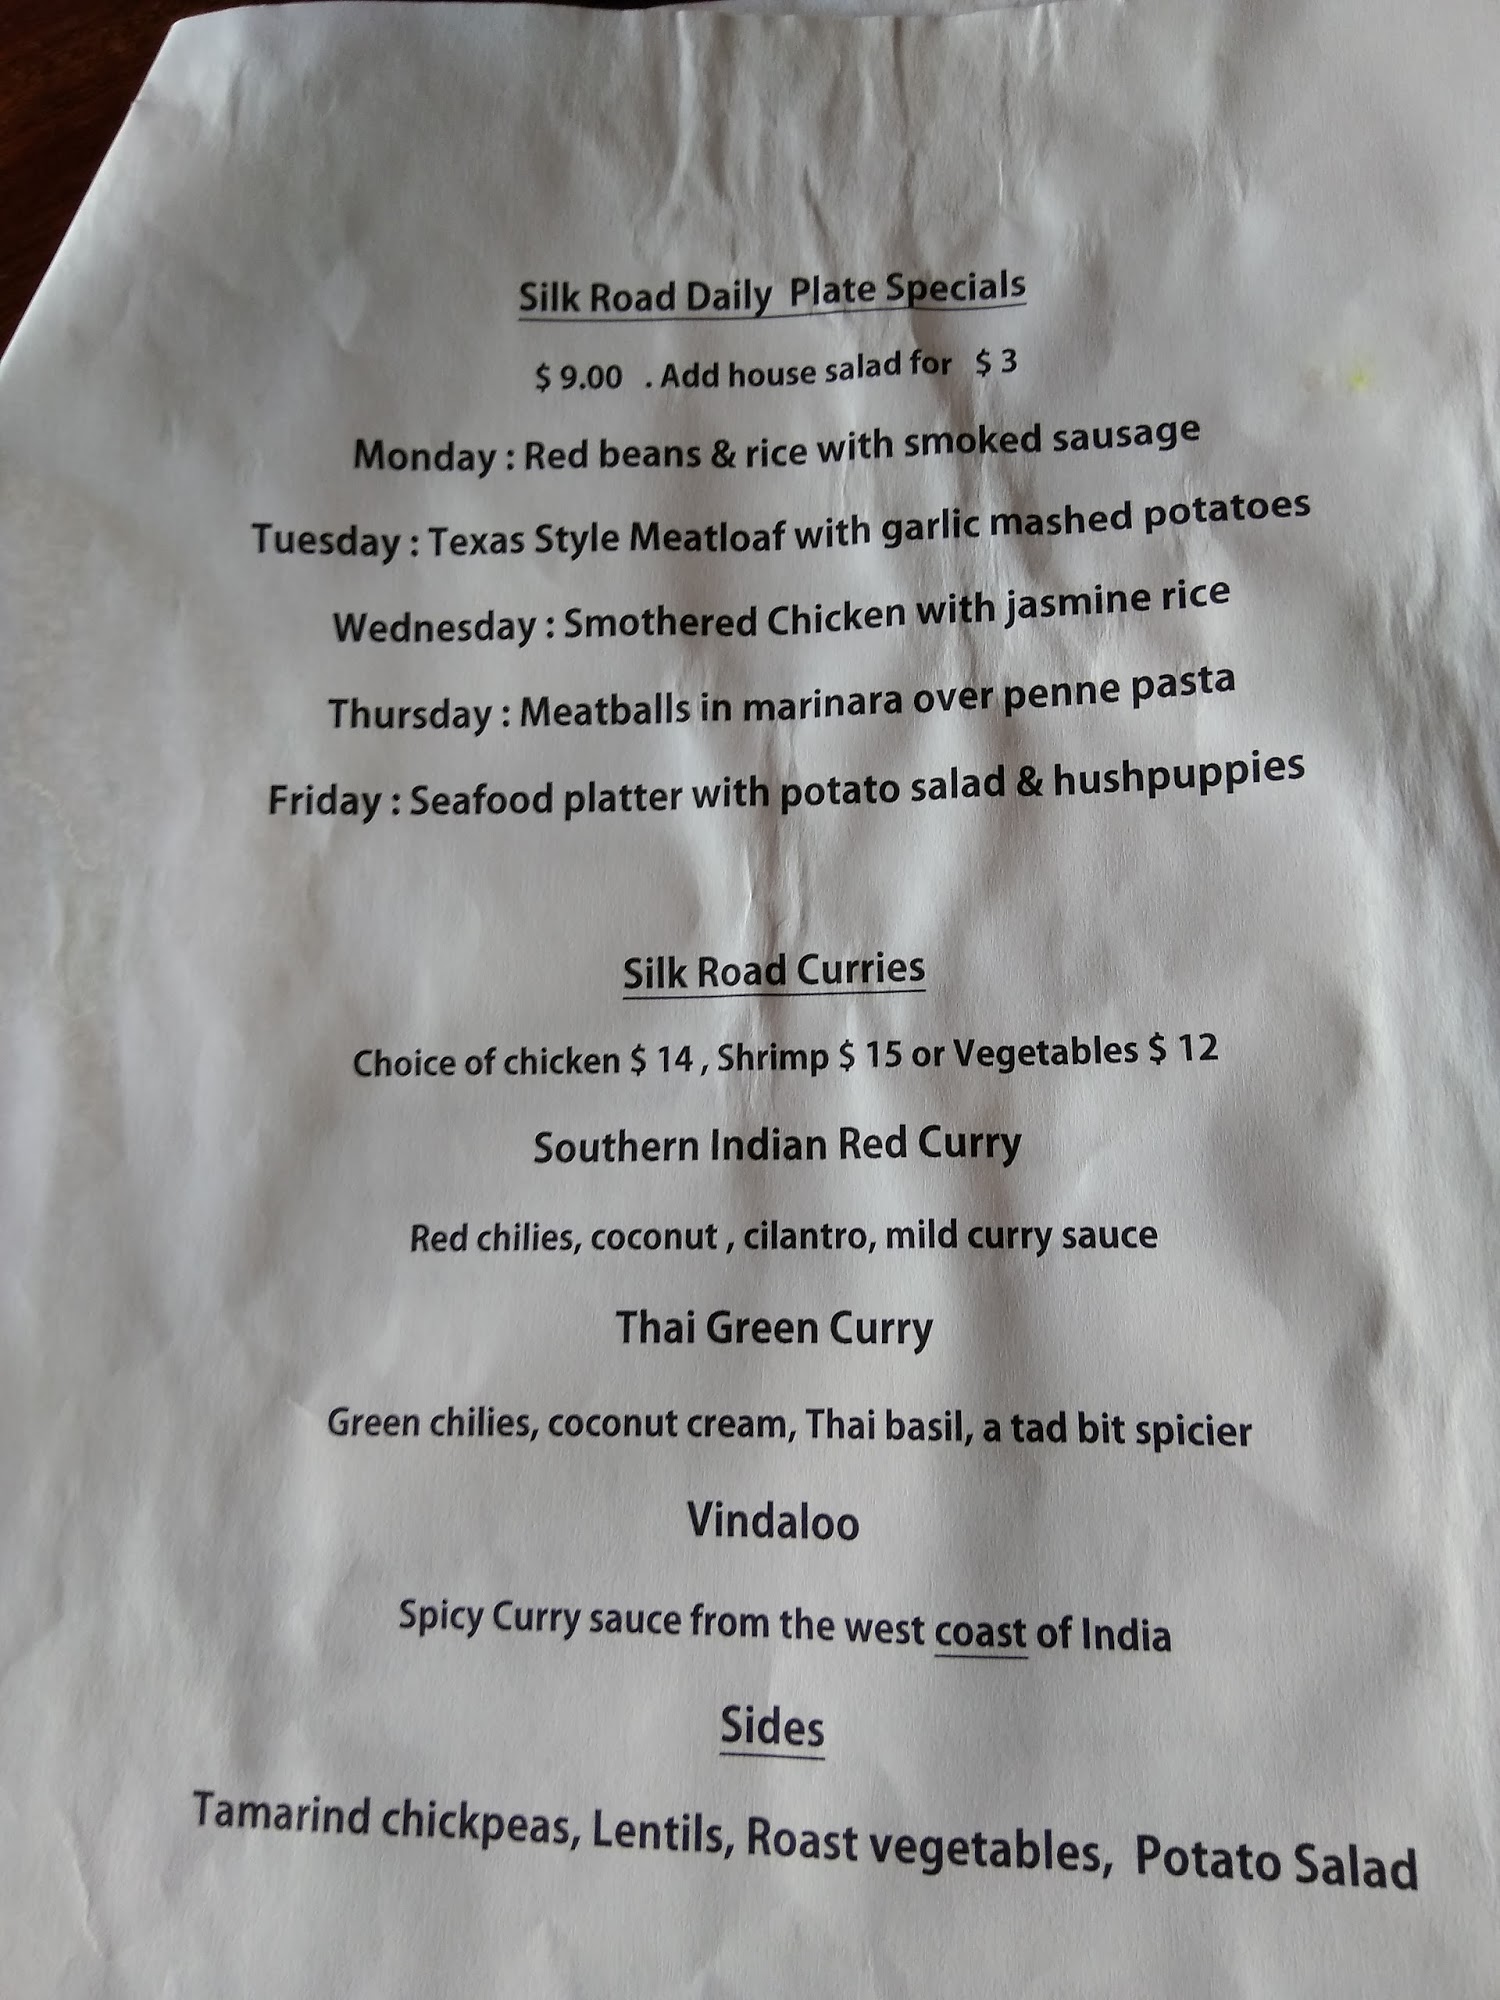 Silk Road Daily Plate Specials
$ 9.00 . Add house salad for $ 3
Monday : Red beans & rice with smoked sausage
Tuesday : Texas Style Meatloaf with garlic mashed potatoes
Wednesday : Smothered Chicken with jasmine rice
Thursday : Meatballs in marinara over penne pasta
Friday : Seafood platter with potato salad & hushpuppies
Silk Road Curries
Choice of chicken $ 14 , Shrimp $ 15 or Vegetables $ 12
Southern Indian Red Curry
Red chilies, coconut , cilantro, mild curry sauce
Thai Green Curry
Green chilies, coconut cream, Thai basil, a tad bit spicier
Vindaloo
Spicy Curry sauce from the west coast of India
Sides
Tamarind chickpeas, Lentils, Roast vegetables, Potato Salad